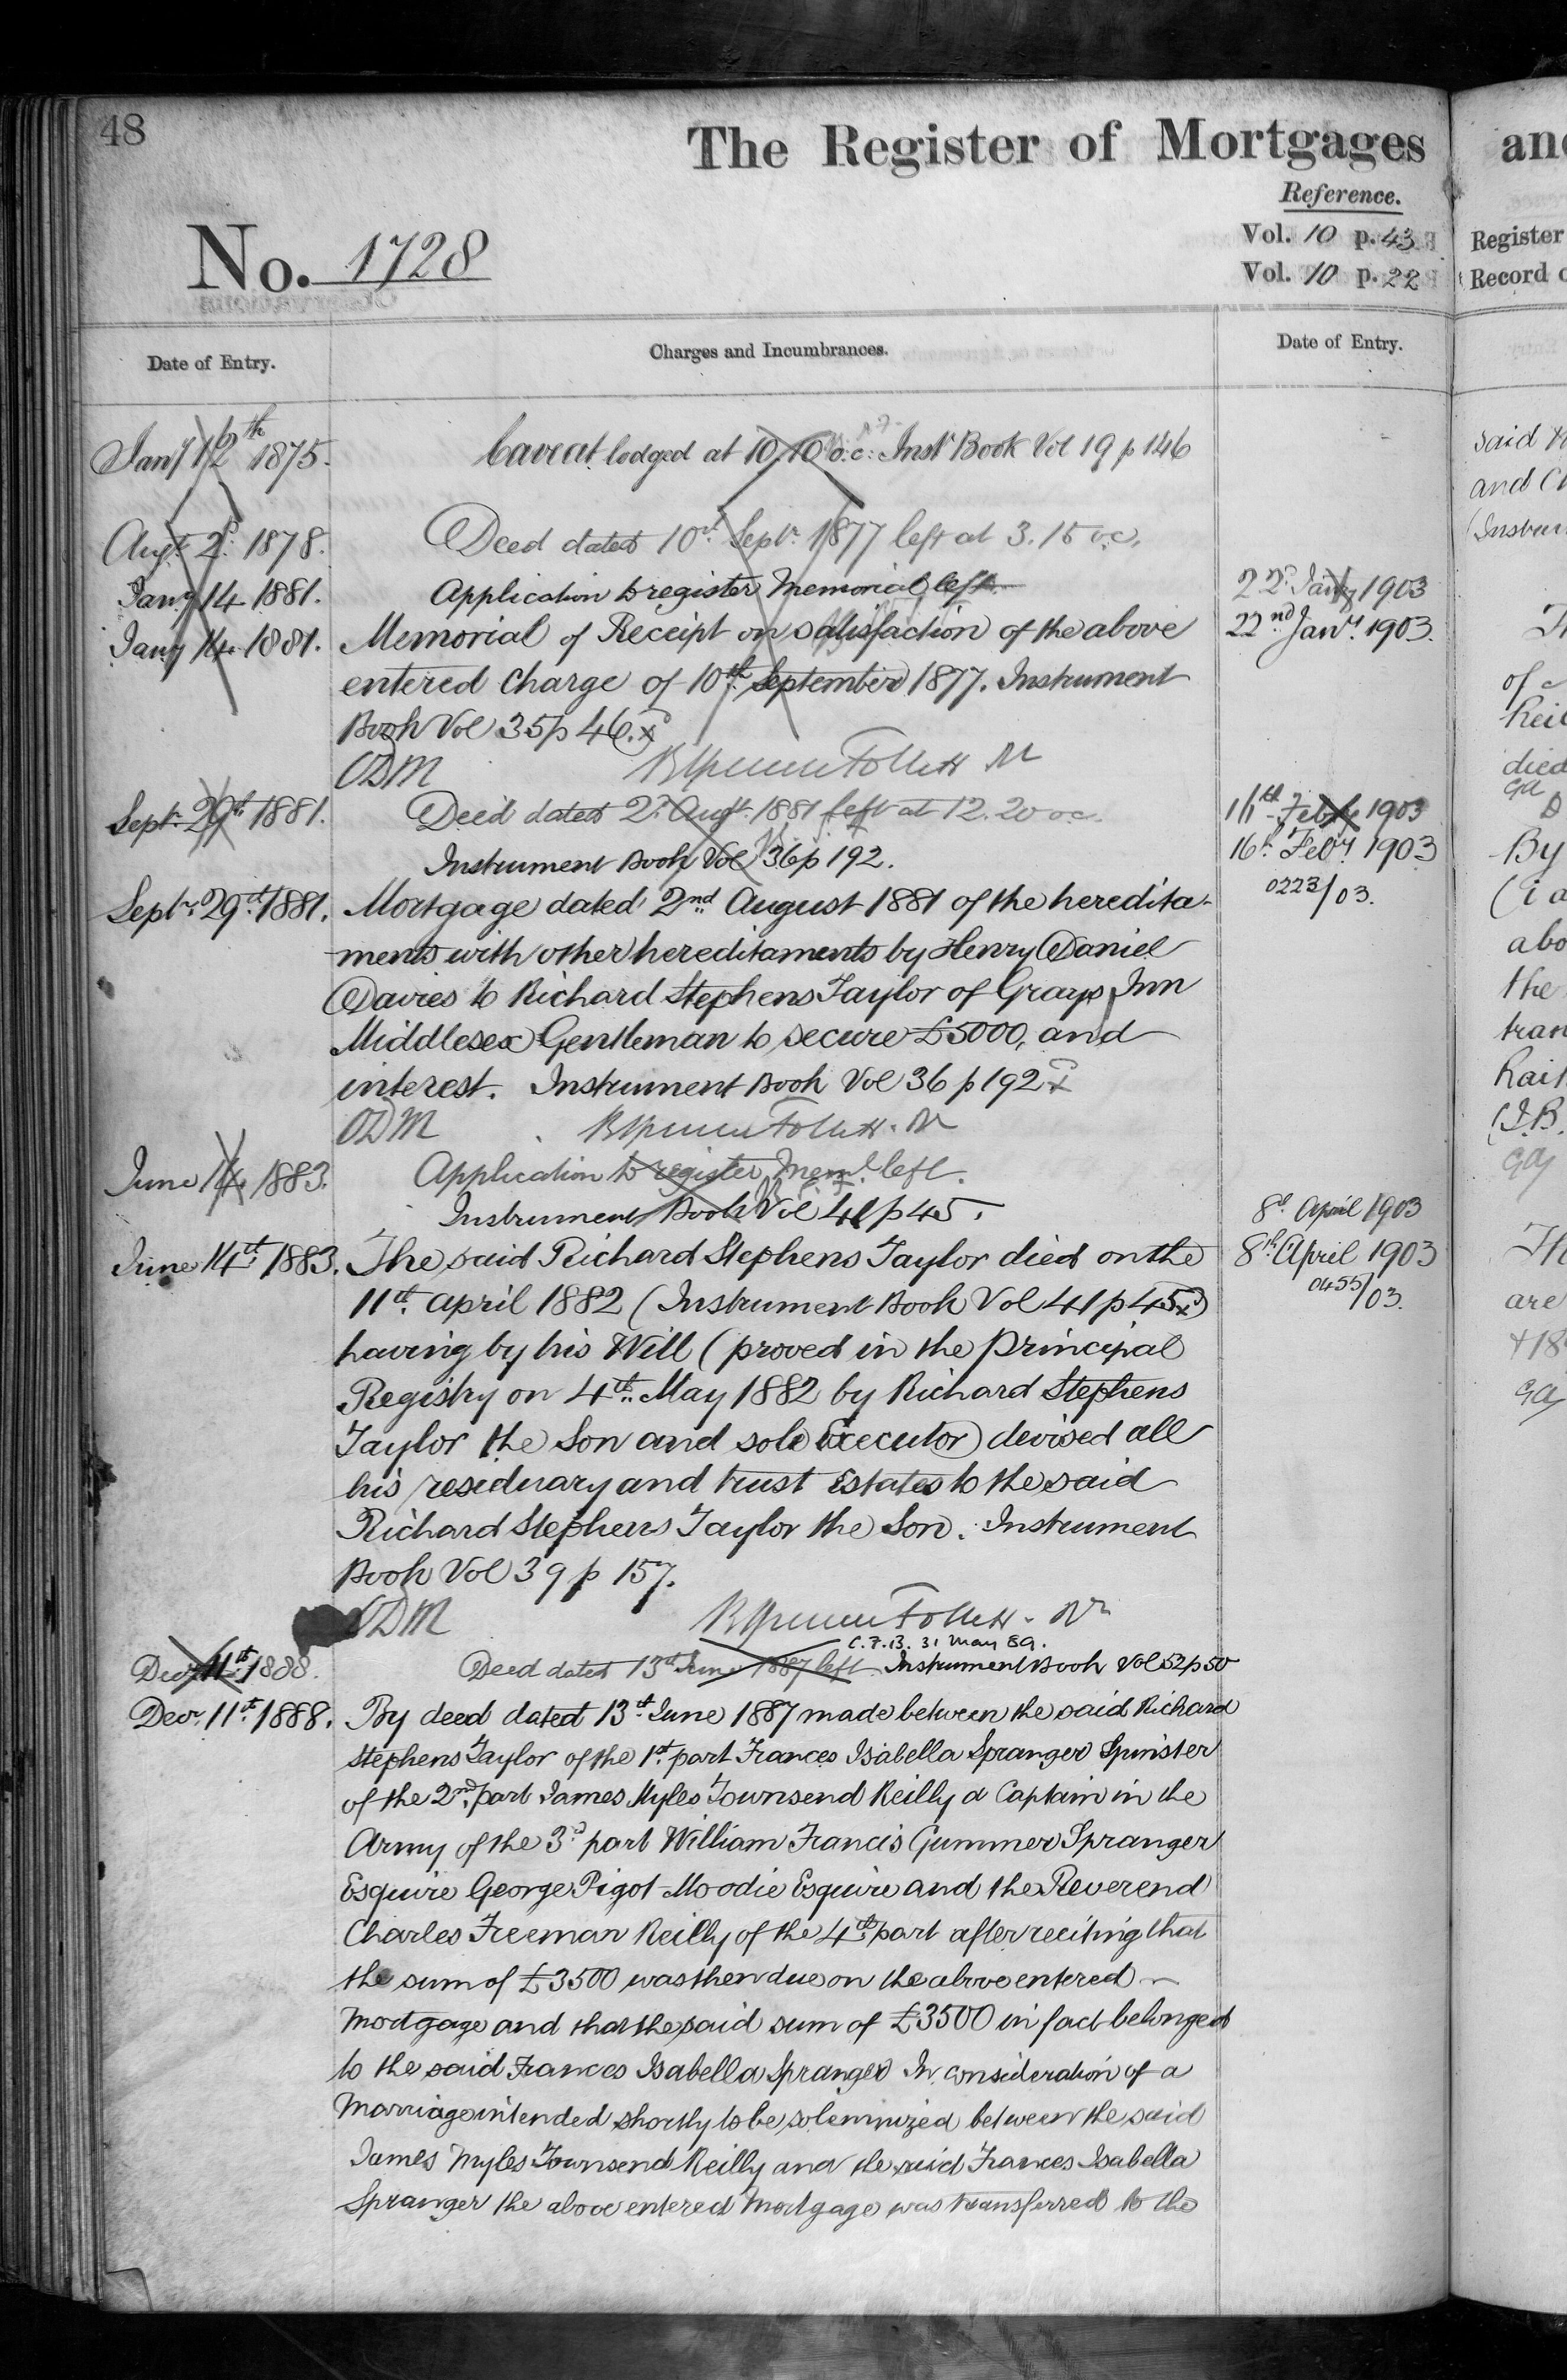 48
The Register of Mortgages
Reference.
No. 1728
Vol. 10 p. 43
Vol. 10 p. 22
Date of Entry.
Charges and Incumbrances.
Date of Entry.
Jany 12th 1875.
Caveat lodged at 10.10 o.c. Inst Book Vol 19 p 146
Augt 2d 1878.
Deed dated 10th Septr 1877 left at 3.15 o.c.
Jany 14 1881.
Application to register Memorial left
22d Jany 1903
Jany 14 1881.
Memorial of Receipt on satisfaction of the above
22nd Jany 1903.
entered charge of 10th September 1877. Instrument
Book Vol 35 p 46.
ODM
Septr 29th 1881.
Deed dated 2d Augt 1881 left at 12.20 o.c.
Feby 1903
Instrument Book Vol 36 p 192.
16th Feby 1903
Septr 29th 1881.
Mortgage dated 2nd August 1881 of the heredita-
0223/03.
ments with other hereditaments by Henry Daniel
Davies to Richard Stephens Taylor of Grays Inn
Middlesex Gentleman to secure £5000, and
interest. Instrument Book Vol 36 p 192
ODM
June 14 1883.
Application to register Meml left.
Instrument Book Vol 41 p 45.
8th April 1903
June 14th 1883.
The said Richard Stephens Taylor died on the
8th April 1903
11th April 1882 (Instrument Book Vol 41 p 45)
0455/03.
having by his Will (proved in the Principal
Registry on 4th May 1882 by Richard Stephens
Taylor the Son and sole Executor) devised all
his residuary and trust Estates to the said
Richard Stephens Taylor the Son. Instrument
Book Vol 39 p 157.
ODM
C.F.B. 31 May 89.
Decr 11th 1888.
Deed dated 13th June 1887 left Instrument Book Vol 52 p 50
Decr 11th 1888.
By deed dated 13th June 1887 made between the said Richard
Stephens Taylor of the 1st part Frances Isabella Spranger Spinster
of the 2nd part James Myles Townsend Reilly a Captain in the
Army of the 3d part William Francis Gummer Spranger
Esquire George Pigot-Moodie Esquire and the Reverend
Charles Freeman Reilly of the 4th part after reciting that
the sum of £3500 was then due on the above entered
Mortgage and that the said sum of £3500 in fact belonged
to the said Frances Isabella Spranger In consideration of a
Marriage intended shortly to be solemnized between the said
James Myles Townsend Reilly and the said Frances Isabella
Spranger the above entered Mortgage was transferred to the
Register
Record
said
and
of
died
By
abo
the
tran
are